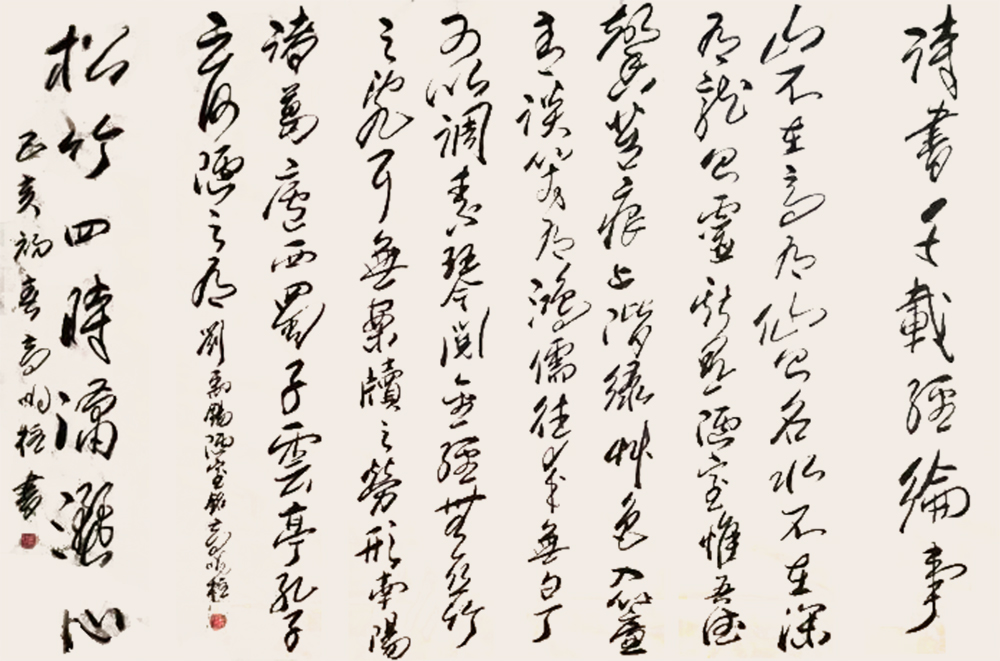 詩書千載經綸事
山不在高有仙則名水不在深
有龍則靈斯是陋室惟吾德
馨苔痕上階綠艸色入簾
青談笑有鴻儒往來無白丁
可以調素琴閱金經無絲竹
之亂耳無案牘之勞形南陽
諸葛廬西蜀子雲亭孔子
云何陋之有劉禹錫陋室銘高柱
松竹四時瀟灑心
亥初春高柱書